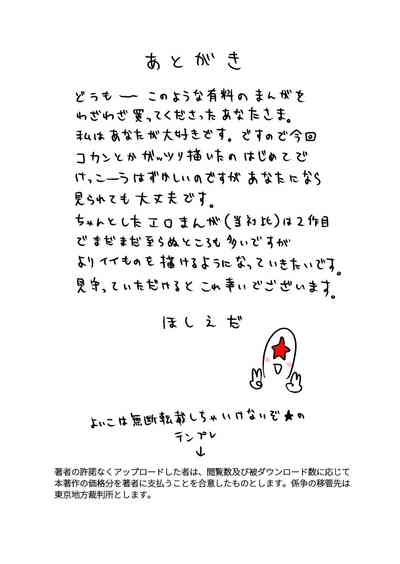 あとがき
どうも── このような有料のまんがを
わざわざ買ってくださったあなたさま。
私はあなたが大好きです。ですので今回
コカンとかガッツリ描いたのはじめてで
けっこーうはずかしいのですが あなたになら
見られても大丈夫です。
ちゃんとしたエロまんが(当社比)は2作目
でまだまだ至らぬところも多いですが
よりイイものを描けるようになっていきたいです。
見守っていただけると これ幸いでございます。
ほしえだ
よいこは無断転載しちゃいけないぞ★の
テンプレ
↓
著者の許諾なくアップロードした者は、閲覧数及び被ダウンロード数に応じて
本著作の価格分を著者に支払うことを合意したものとします。係争の移管先は
東京地方裁判所とします。